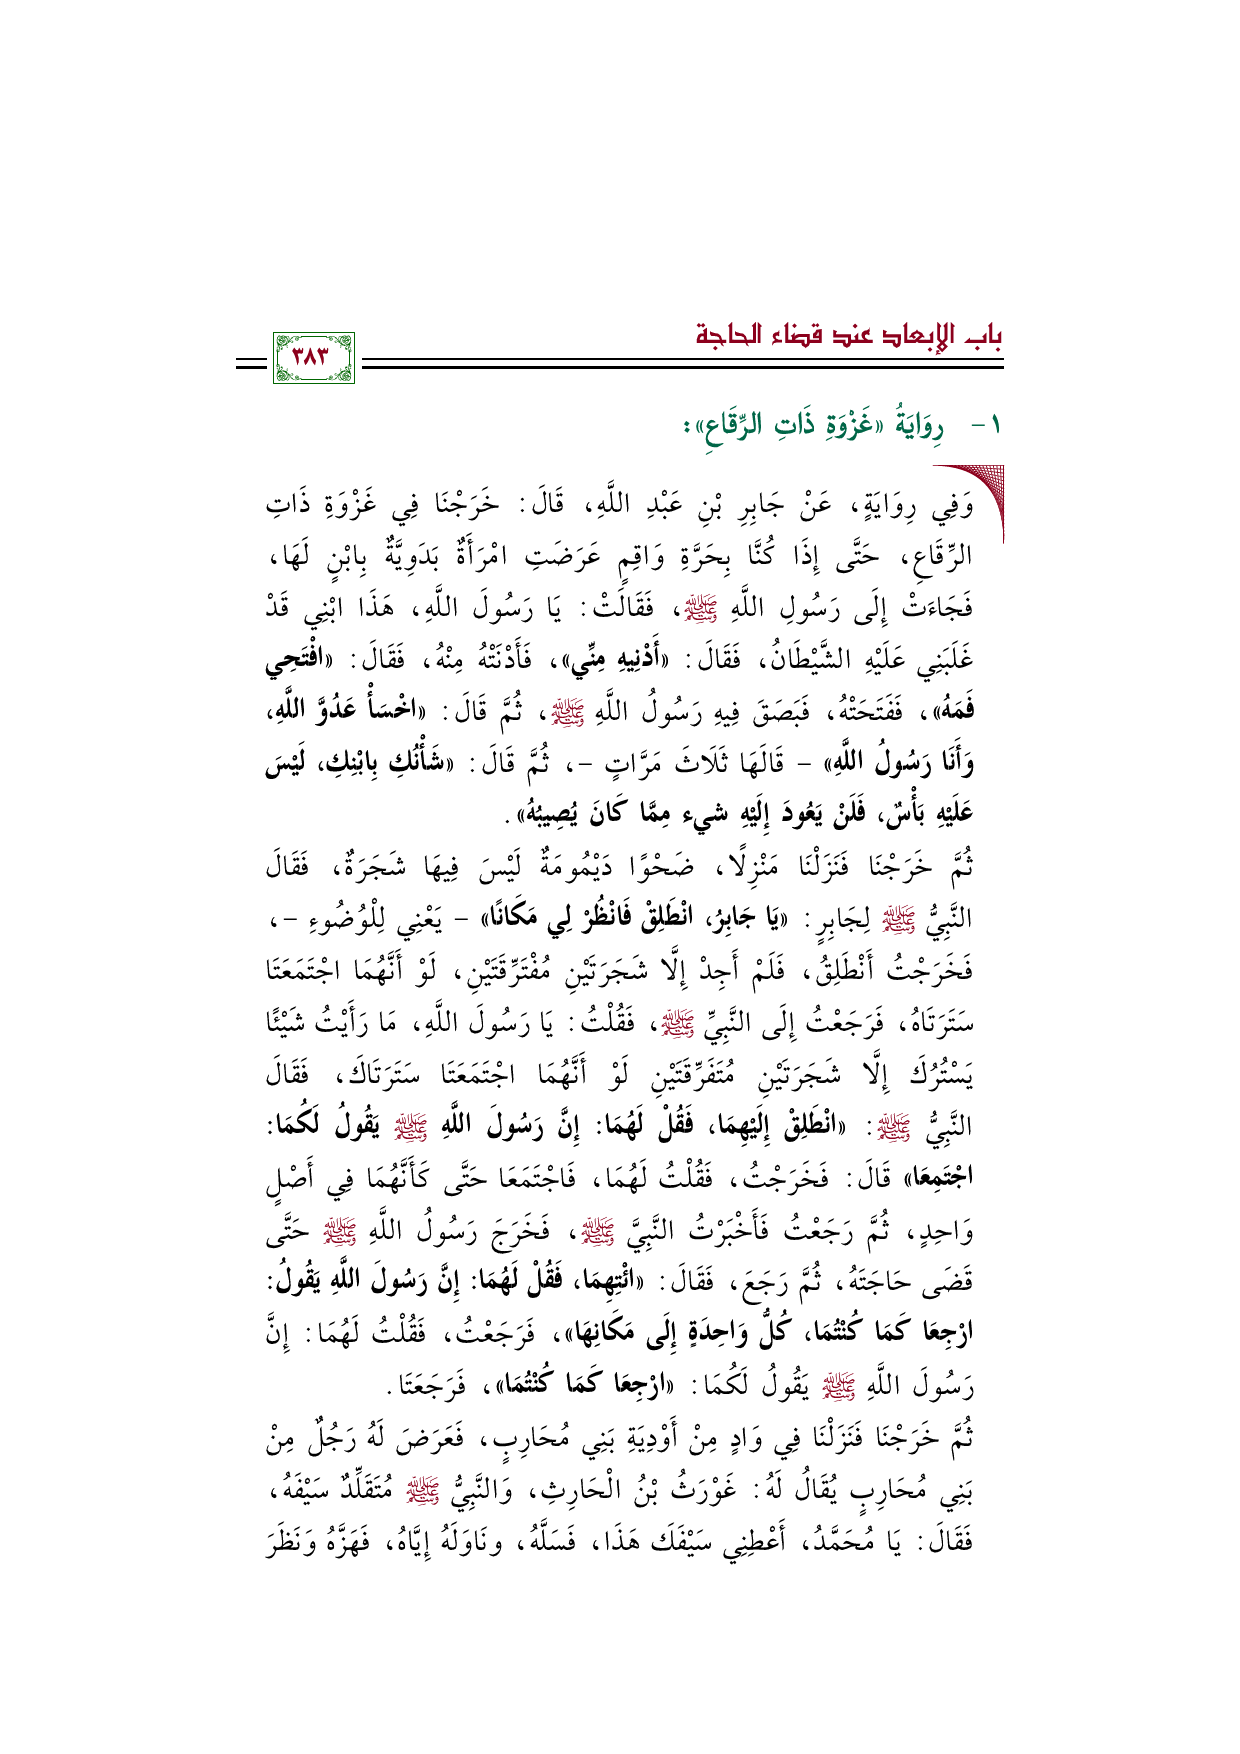 باب الإبعاد عند قضاء الحاجة
٣٨٣
١- رِوَايَةُ «غَزْوَةِ ذَاتِ الرِّقَاعِ»:
وَفِي رِوَايَةٍ، عَنْ جَابِرِ بْنِ عَبْدِ اللَّهِ، قَالَ: خَرَجْنَا فِي غَزْوَةِ ذَاتِ
الرِّقَاعِ، حَتَّى إِذَا كُنَّا بِحَرَّةِ وَاقِمٍ عَرَضَتِ امْرَأَةٌ بَدَوِيَّةٌ بِابْنٍ لَهَا،
فَجَاءَتْ إِلَى رَسُولِ اللَّهِ ﷺ، فَقَالَتْ: يَا رَسُولَ اللَّهِ، هَذَا ابْنِي قَدْ
غَلَبَنِي عَلَيْهِ الشَّيْطَانُ، فَقَالَ: «أَدْنِيهِ مِنِّي»، فَأَدْنَتْهُ مِنْهُ، فَقَالَ: «افْتَحِي
فَمَهُ»، فَفَتَحَتْهُ، فَبَصَقَ فِيهِ رَسُولُ اللَّهِ ﷺ، ثُمَّ قَالَ: «اخْسَأْ عَدُوَّ اللَّهِ،
وَأَنَا رَسُولُ اللَّهِ» - قَالَهَا ثَلَاثَ مَرَّاتٍ -، ثُمَّ قَالَ: «شَأْنُكِ بِابْنِكِ، لَيْسَ
عَلَيْهِ بَأْسٌ، فَلَنْ يَعُودَ إِلَيْهِ شيء مِمَّا كَانَ يُصِيبُهُ».
ثُمَّ خَرَجْنَا فَنَزَلْنَا مَنْزِلًا، ضَحْوًا دَيْمُومَةٌ لَيْسَ فِيهَا شَجَرَةٌ، فَقَالَ
النَّبِيُّ ﷺ لِجَابِرٍ: «يَا جَابِرُ، انْطَلِقْ فَانْظُرْ لِي مَكَانًا» - يَعْنِي لِلْوُضُوءِ -،
فَخَرَجْتُ أَنْطَلِقُ، فَلَمْ أَجِدْ إِلَّا شَجَرَتَيْنِ مُفْتَرِّقَتَيْنِ، لَوْ أَنَّهُمَا اجْتَمَعَتَا
سَتَرَتَاهُ، فَرَجَعْتُ إِلَى النَّبِيِّ ﷺ، فَقُلْتُ: يَا رَسُولَ اللَّهِ، مَا رَأَيْتُ شَيْئًا
يَسْتُرُكَ إِلَّا شَجَرَتَيْنِ مُتَفَرِّقَتَيْنِ لَوْ أَنَّهُمَا اجْتَمَعَتَا سَتَرَتَاكَ، فَقَالَ
النَّبِيُّ ﷺ: «انْطَلِقْ إِلَيْهِمَا، فَقُلْ لَهُمَا: إِنَّ رَسُولَ اللَّهِ ﷺ يَقُولُ لَكُمَا:
اجْتَمِعَا» قَالَ: فَخَرَجْتُ، فَقُلْتُ لَهُمَا، فَاجْتَمَعَا حَتَّى كَأَنَّهُمَا فِي أَصْلٍ
وَاحِدٍ، ثُمَّ رَجَعْتُ فَأَخْبَرْتُ النَّبِيَّ ﷺ، فَخَرَجَ رَسُولُ اللَّهِ ﷺ حَتَّى
قَضَى حَاجَتَهُ، ثُمَّ رَجَعَ، فَقَالَ: «ائْتِهِمَا، فَقُلْ لَهُمَا: إِنَّ رَسُولَ اللَّهِ يَقُولُ:
ارْجِعَا كَمَا كُنْتُمَا، كُلُّ وَاحِدَةٍ إِلَى مَكَانِهَا»، فَرَجَعْتُ، فَقُلْتُ لَهُمَا: إِنَّ
رَسُولَ اللَّهِ ﷺ يَقُولُ لَكُمَا: «ارْجِعَا كَمَا كُنْتُمَا»، فَرَجَعَتَا.
ثُمَّ خَرَجْنَا فَنَزَلْنَا فِي وَادٍ مِنْ أَوْدِيَةِ بَنِي مُحَارِبٍ، فَعَرَضَ لَهُ رَجُلٌ مِنْ
بَنِي مُحَارِبٍ يُقَالُ لَهُ: غَوْرَثُ بْنُ الْحَارِثِ، وَالنَّبِيُّ ﷺ مُتَقَلِّدٌ سَيْفَهُ،
فَقَالَ: يَا مُحَمَّدُ، أَعْطِنِي سَيْفَكَ هَذَا، فَسَلَّهُ، ونَاوَلَهُ إِيَّاهُ، فَهَزَّهُ وَنَظَرَ